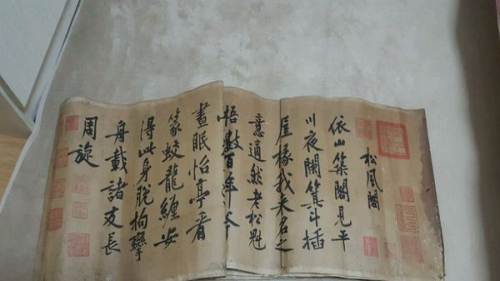 松風閣
依山築閣見平
川夜闌箕斗插
屋椽我来名之
意適然老松魁
梧數百年
晝眠怡亭看
篆蛟龍纏安
得此身脫拘攣
舟載諸友長
周旋